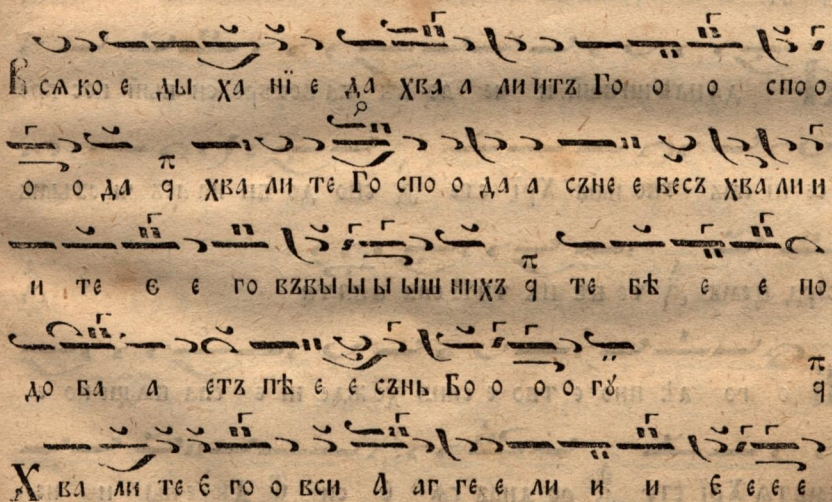 Всѧ ко е ды ха нїе да хва а ли итъ Го о о спо о
о о да хва ли те Го спо о да а съне е бесъ хва ли и
и те Є е го въвы ы ы ыш нихъ те бѣ е е по
до ба а етъ пѣ е е сънь Бо о о о гѹ
Хва ли те Є го о вси А аг ге е ли и и Є е е е